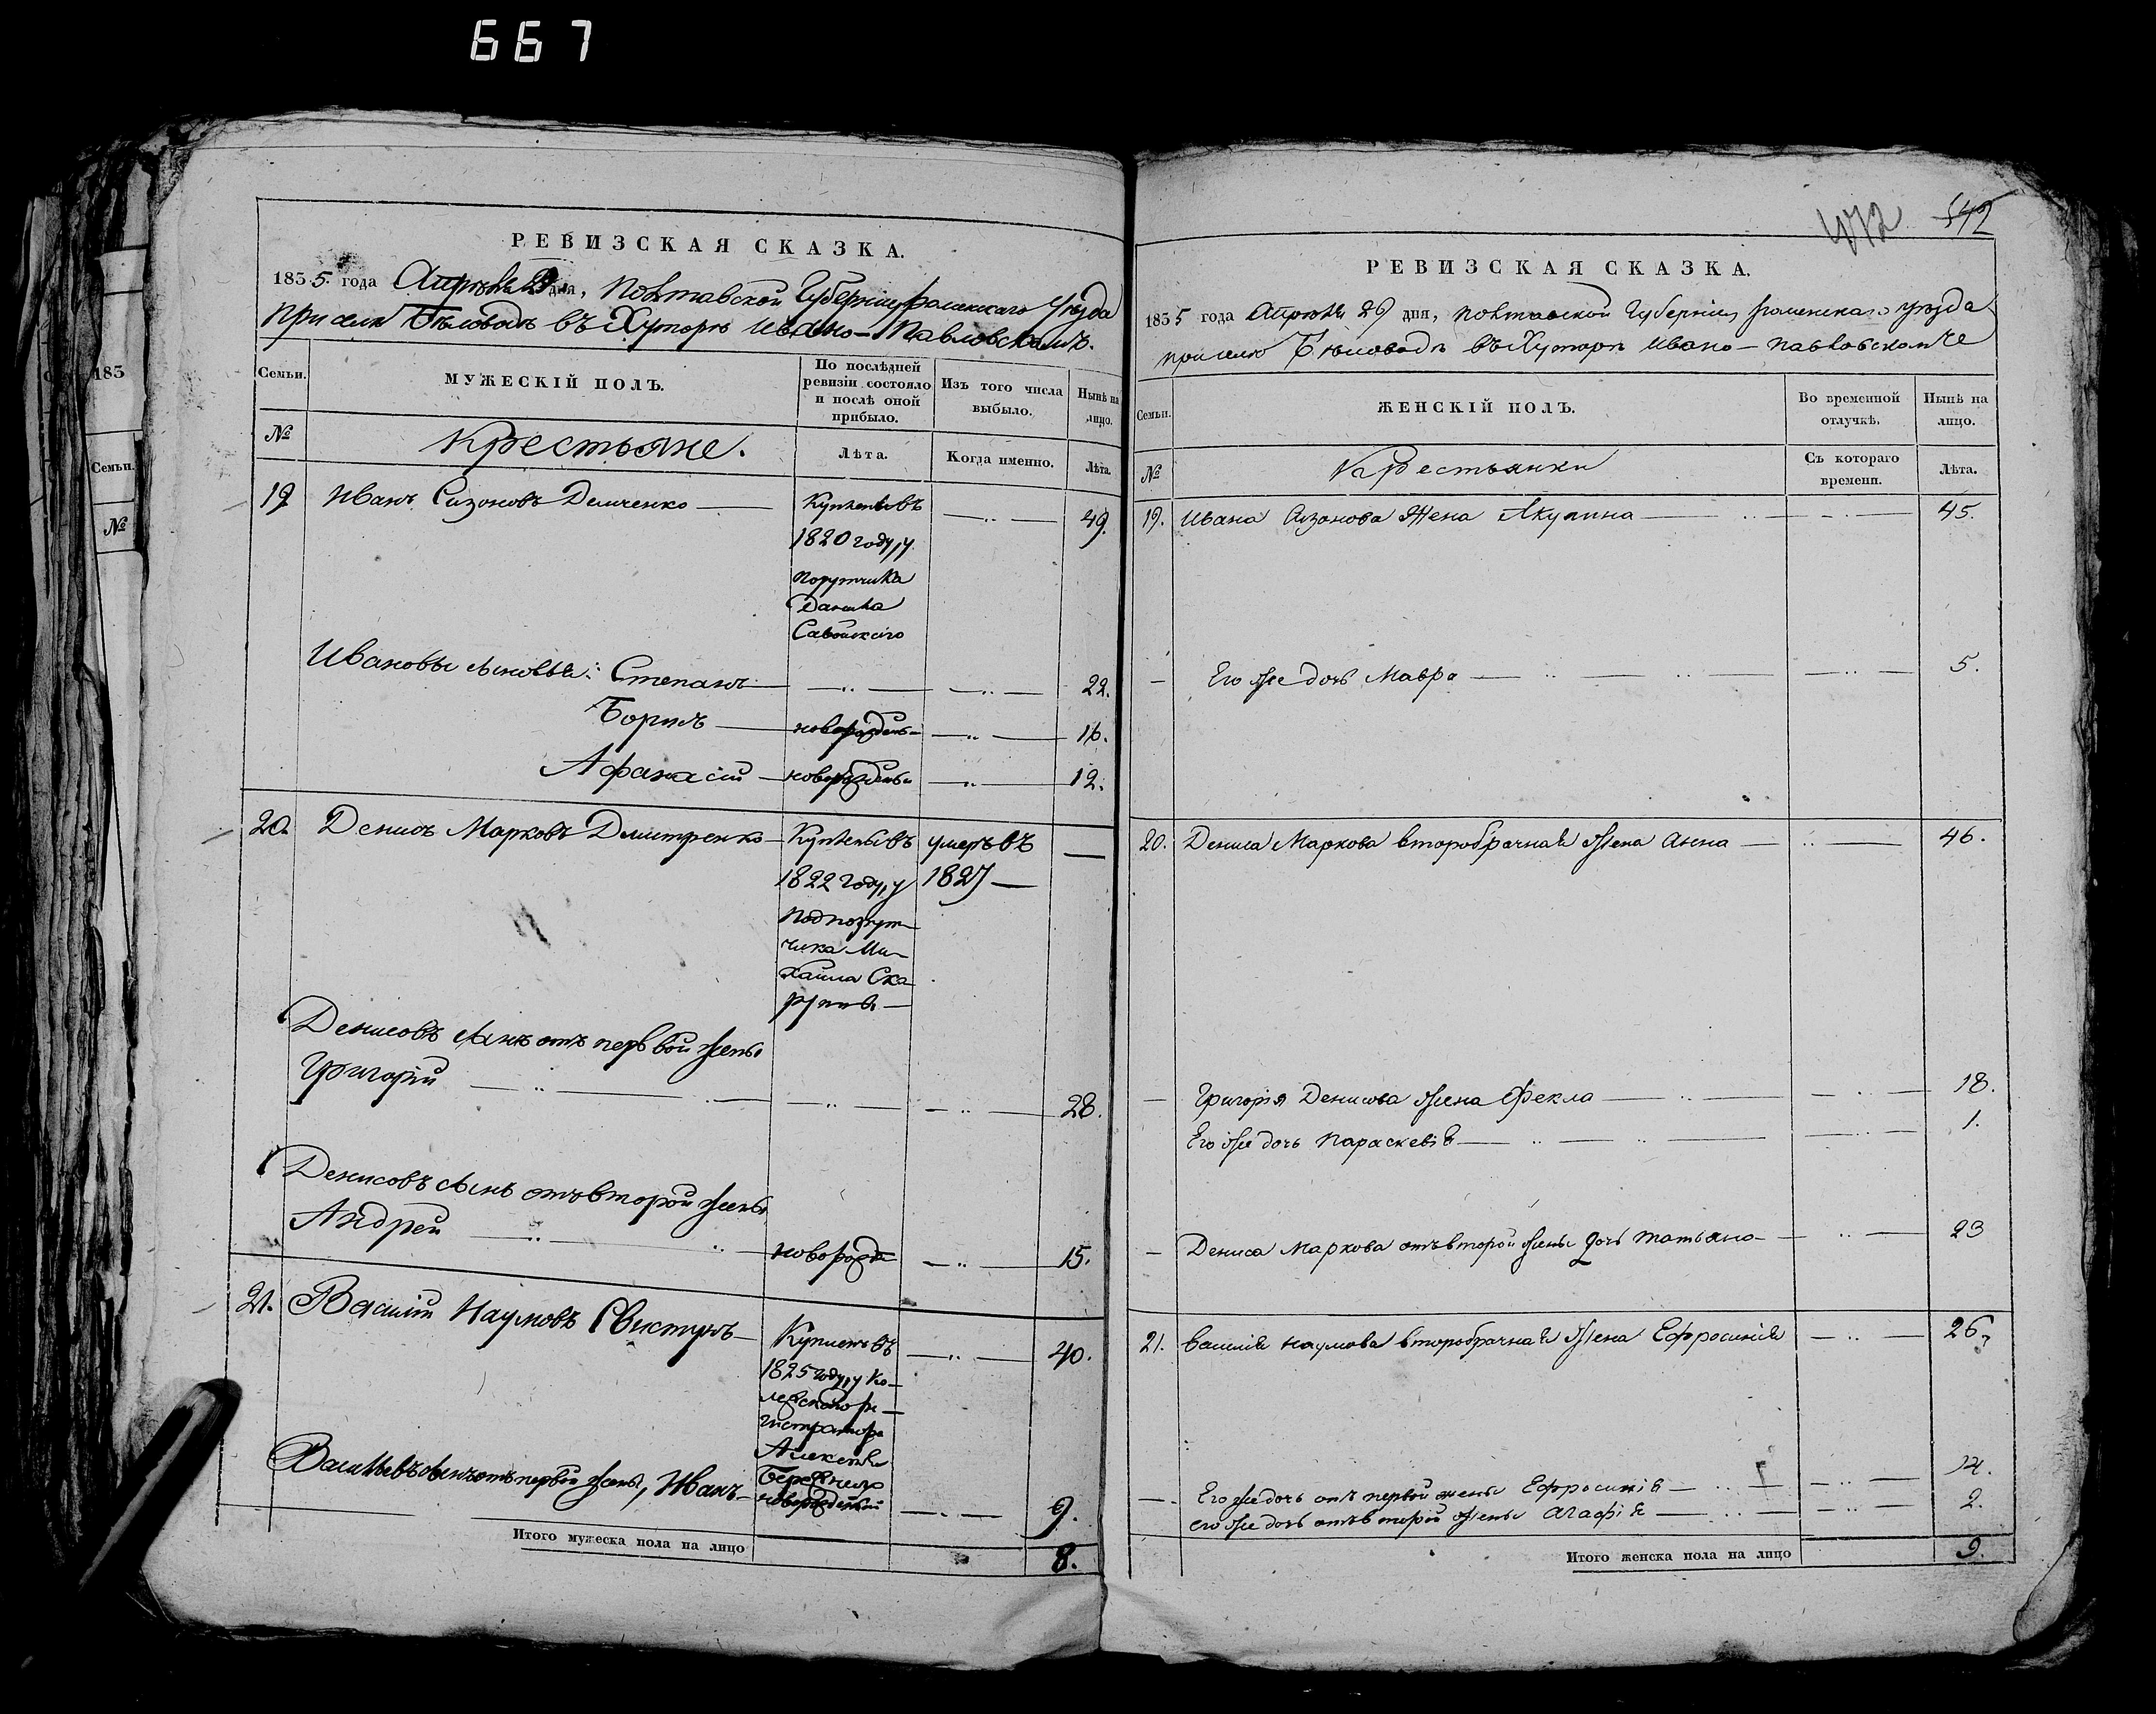 667
РЕВИЗСКАЯ СКАЗКА.
1835 года Апрѣля 29 дня, Полтавской Губерніи, Роменскаго Уѣзда
При селѣ Бѣловодѣ въ Хуторѣ Ивано-Павловскомъ.
Семьи. МУЖЕСКІЙ ПОЛЪ. По послѣдней ревизіи состояло и послѣ оной прибыло. Изъ того числа выбыло. Нынѣ на лицо.
№ Крестьяне. Лѣта. Когда именно. Лѣта.
19 Иванъ Сизоновъ Демченко — Купленъ въ — 49.
1820 году, у
порутчика
Данила
Ивановы сыновья: Степанъ — 22.
Борисъ — новорожденъ — 16.
Афанасій — новорожденъ — 12.
20. Денисъ Марковъ Дмитренко — Купленъ въ умеръ въ —
1822 году, у 1827 —
подпорут-
чика Ми-
хаила Ска-
Денисовъ сынъ отъ первой жены
Григорій — 28.
Денисовъ сынъ отъ второй жены
Андрей — новорожде — 15.
21. Василій Наумовъ Свистунъ — Купленъ въ — 40.
1825 году, у Ко-
лежскаго ре-
гистратора
Алексѣя
Васильевъ сынъ отъ первой жены, Иванъ — новорожденный — 9.
Итого мужеска пола на лицо 8.
472 542
РЕВИЗСКАЯ СКАЗКА.
1835 года Апрѣля 29 дня, Полтавской Губерніи, Роменскаго уѣзда
при селѣ Бѣловодѣ въ Хуторѣ Ивано-Павловскомъ
Семьи. ЖЕНСКІЙ ПОЛЪ. Во временной отлучкѣ. Нынѣ на лицо.
№ Крестьянки Съ котораго времени. Лѣта.
19. Ивана Сизонова Жена Акулина — 45.
— Его же дочь Мавра — 5.
20. Дениса Маркова второбрачная жена Анна — 46.
— Григорія Денисова жена Фекла — 18.
Его же дочь Параскевія — 1.
— Дениса Маркова отъ второй жены дочь Татьяна — 23
21. Василія Наумова второбрачная жена Ефросинія — 26
— Его же дочь отъ первой жены Ефросинія — 14.
его же дочь отъ второй жены Агафія — 2.
Итого женска пола на лицо 9.
183
Семьи.
№